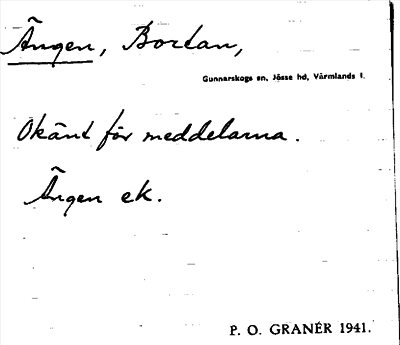 Ängen, Bordan,
Gunnarskogs sn, Jösse hd, Värmlands l.
Okänt för meddelarna.
Ängen ek.
P. O. GRANÉR 1941.